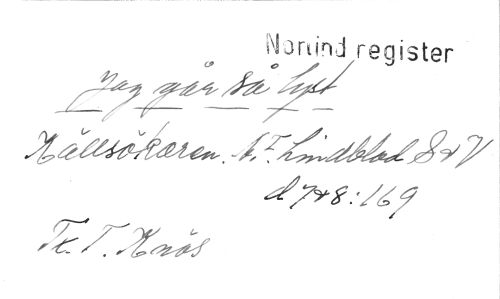 Norlind register
Jag går så lyst
Källsökaren. A. F. Lindblad S & V
d 7 & 8 : 169
Tx. T. Knös